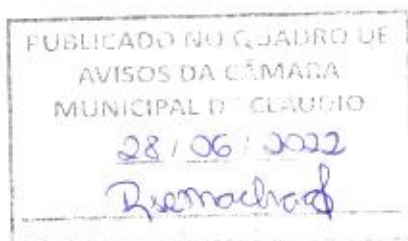 PUBLICADO NO QUADRO DE
AVISOS DA CÂMARA
MUNICIPAL DE CLÁUDIO
28 / 06 / 2022